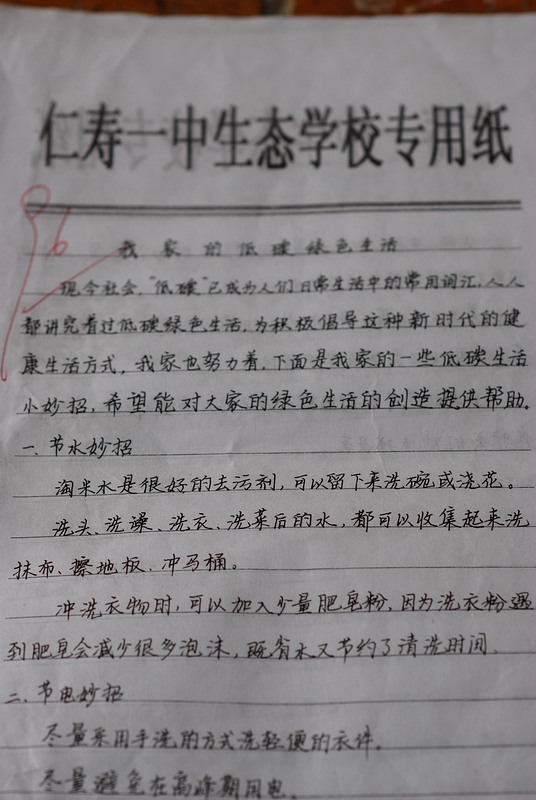 仁寿一中生态学校专用纸
96
我家的低碳绿色生活
现今社会，“低碳”已成为人们日常生活中的常用词汇，人人
都讲究着过低碳绿色生活，为积极倡导这种新时代的健
康生活方式，我家也努力着，下面是我家的一些低碳生活
小妙招，希望能对大家的绿色生活的创造提供帮助。
一、节水妙招
淘米水是很好的去污剂，可以留下来洗碗或浇花。
洗头、洗澡、洗衣、洗菜后的水，都可以收集起来洗
抹布、擦地板、冲马桶。
冲洗衣物时，可以加入少量肥皂粉，因为洗衣粉遇
到肥皂会减少很多泡沫，既省水又节约了清洗时间。
二、节电妙招
尽量采用手洗的方式洗轻便的衣件。
尽量避免在高峰期用电。